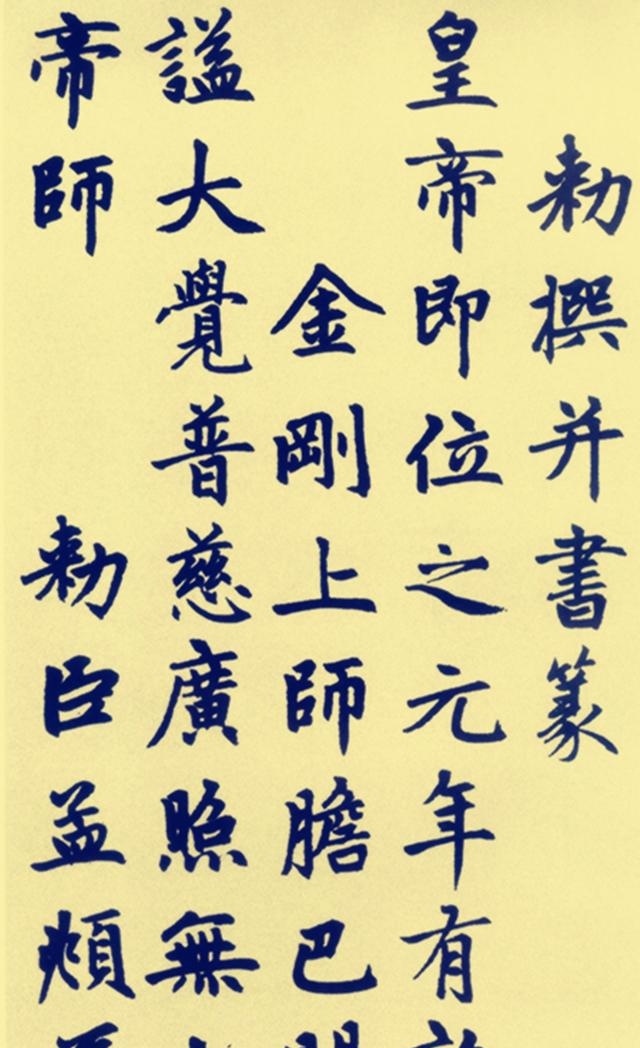 勅撰并書篆
皇帝即位之元年有
金剛上師膽巴
謚大覺普慈廣照無
帝師 勅臣孟頫